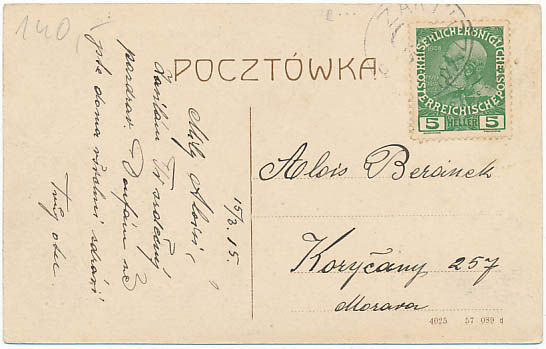 140,
POCZTÓWKA
KAISERLICHE KÖNIGLICHE
ÖSTERREICHISCHE POST
5 HELLER 5
15/3. 15.
Milý Aloisi,
Zasílám Ti srdečný
pozdrav. Doufám že
jste doma všichni zdraví
Tvůj otec.
Alois Beránek
Koryčany 257
Morava
4025 57 089 d